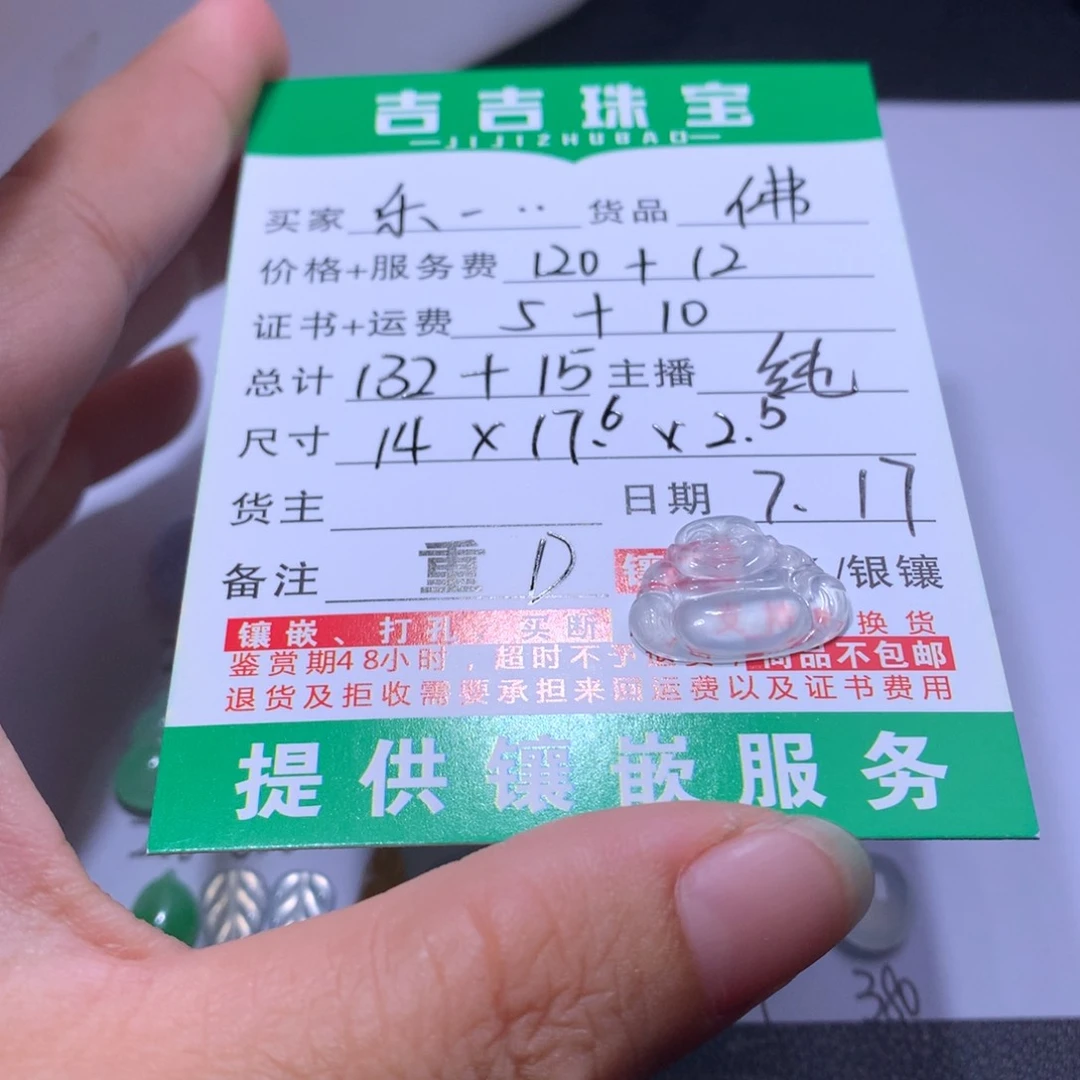 吉吉珠宝
JIJIZHUBAO
买家 乐一‥ 货品 佛
价格+服务费 120 + 12
证书+运费 5 + 10
总计 132 + 15 主播 纯
尺寸 14 × 17.6 × 2.5
货主 日期 7. 17
备注 重 D /银镶
镶嵌、打孔、买断 换货
鉴赏期48小时，超时不予退货，商品不包邮
退货及拒收需要承担来回运费以及证书费用
提供镶嵌服务
380